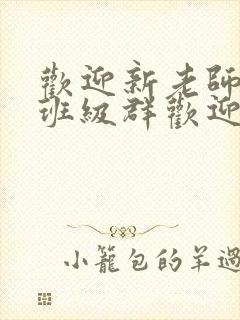 歡迎新老師
班級群歡迎
小籠包的羊過